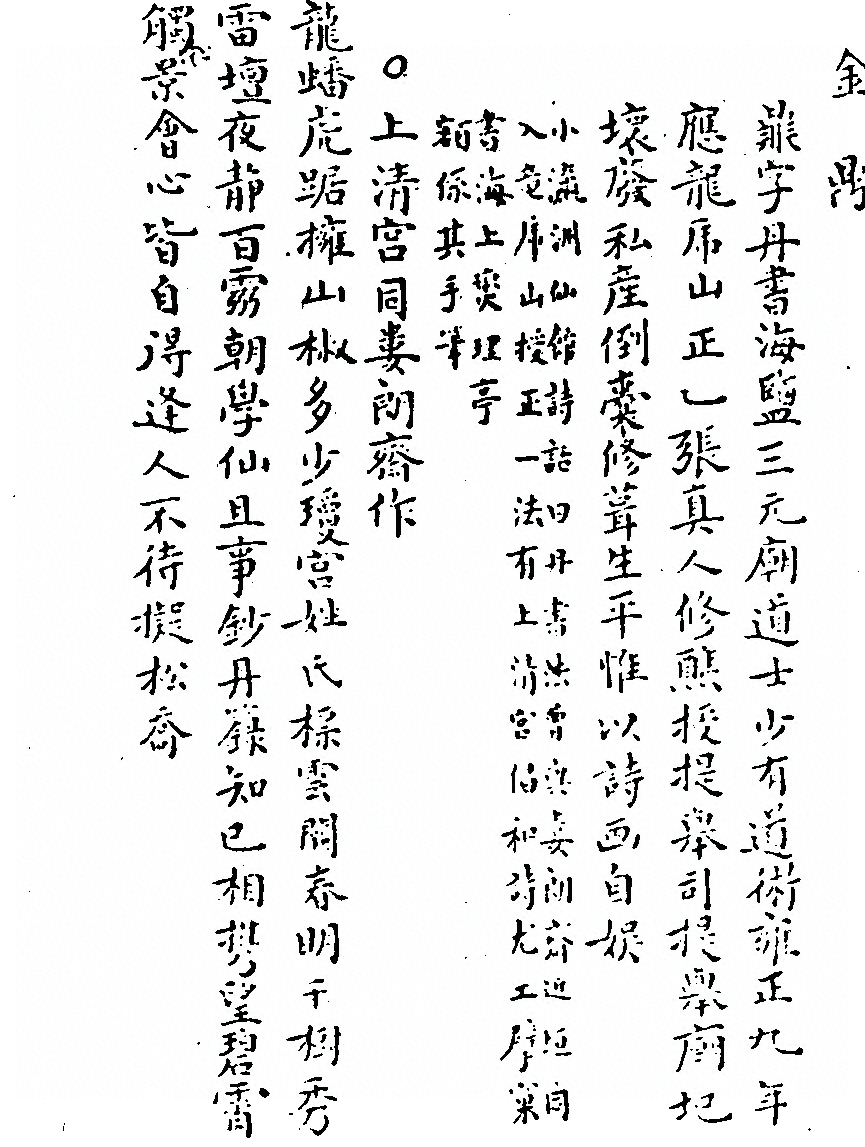 金鼎
鼐字丹書海鹽三元廟道士少有道術雍正九年
應龍虎山正乙張真人修醮授提舉司提舉廟圮
壞發私産倒囊修葺生平惟以詩画自娱
小瀛洲仙館詩話曰丹書法曾與婁朗齋近垣同
入龍虎山授正一法有上清宮倡和詩尤工擘窠
書海上爕理亭
額係其手筆
○上清宮同婁朗齋作
龍蟠虎踞擁山椒多少瓊宮姓氏標雲閣春明千樹秀
雷壇夜静百靈朝學仙且事鈔丹籙知已相携望碧霄
觸景會心皆自得逢人不待擬松喬